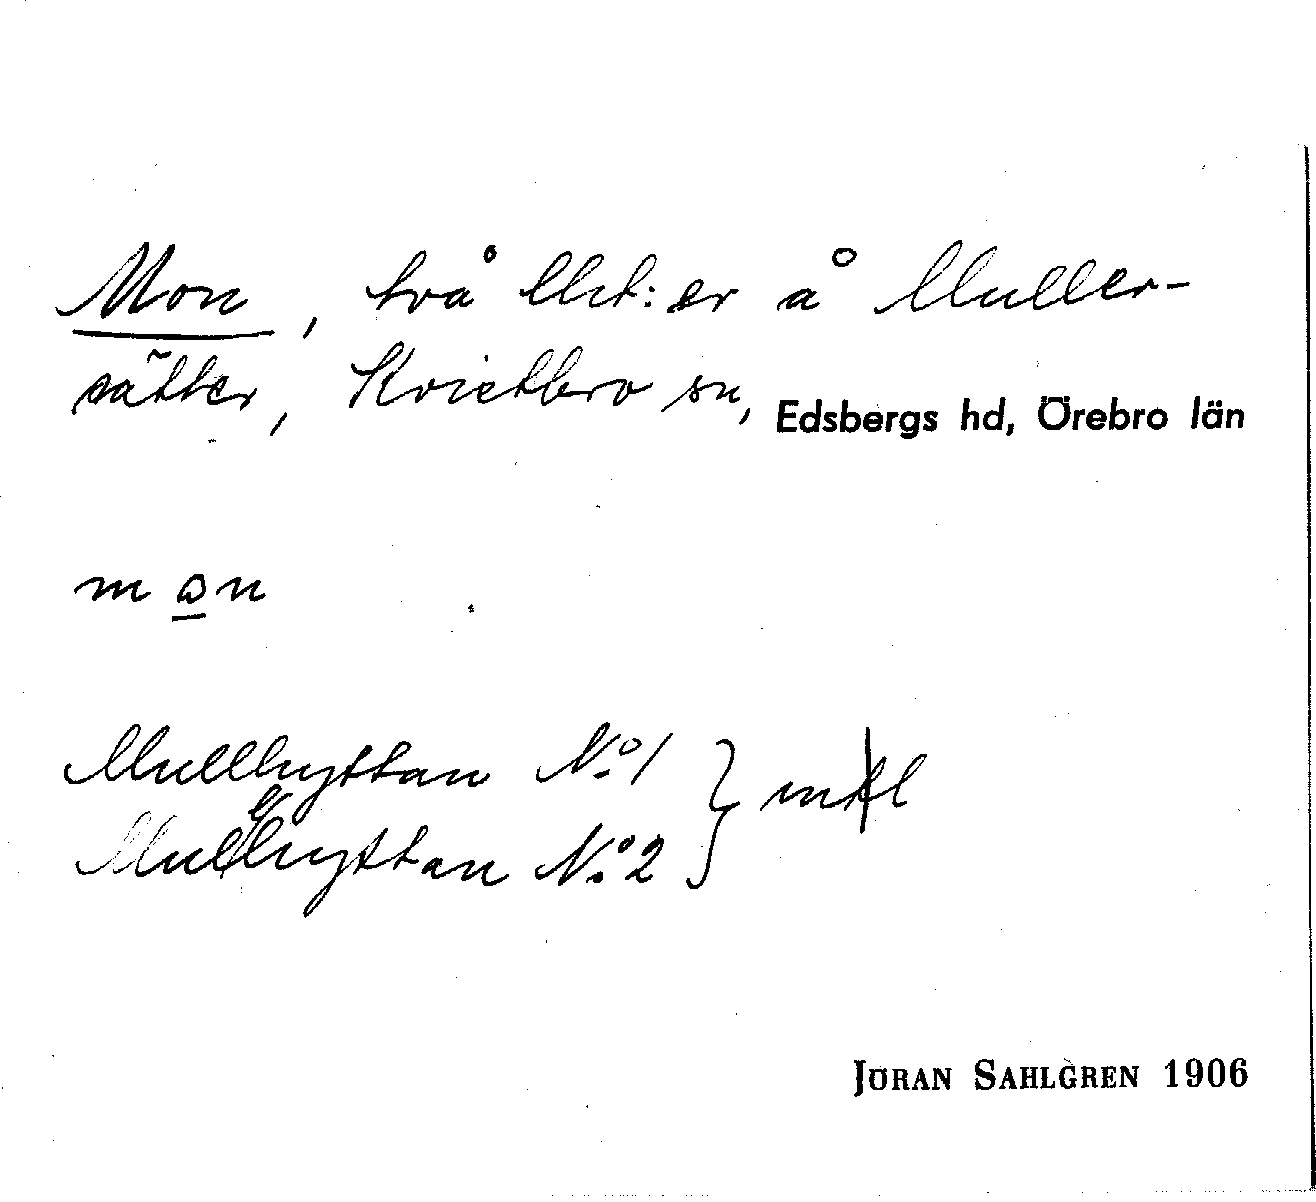 Mon, två lht:er å Muller-
sätter, Kvistbro sn, Edsbergs hd, Örebro län
mɷn
Mullhyttan No. 1
Mullhyttan No. 2
JÖRAN SAHLGREN 1906